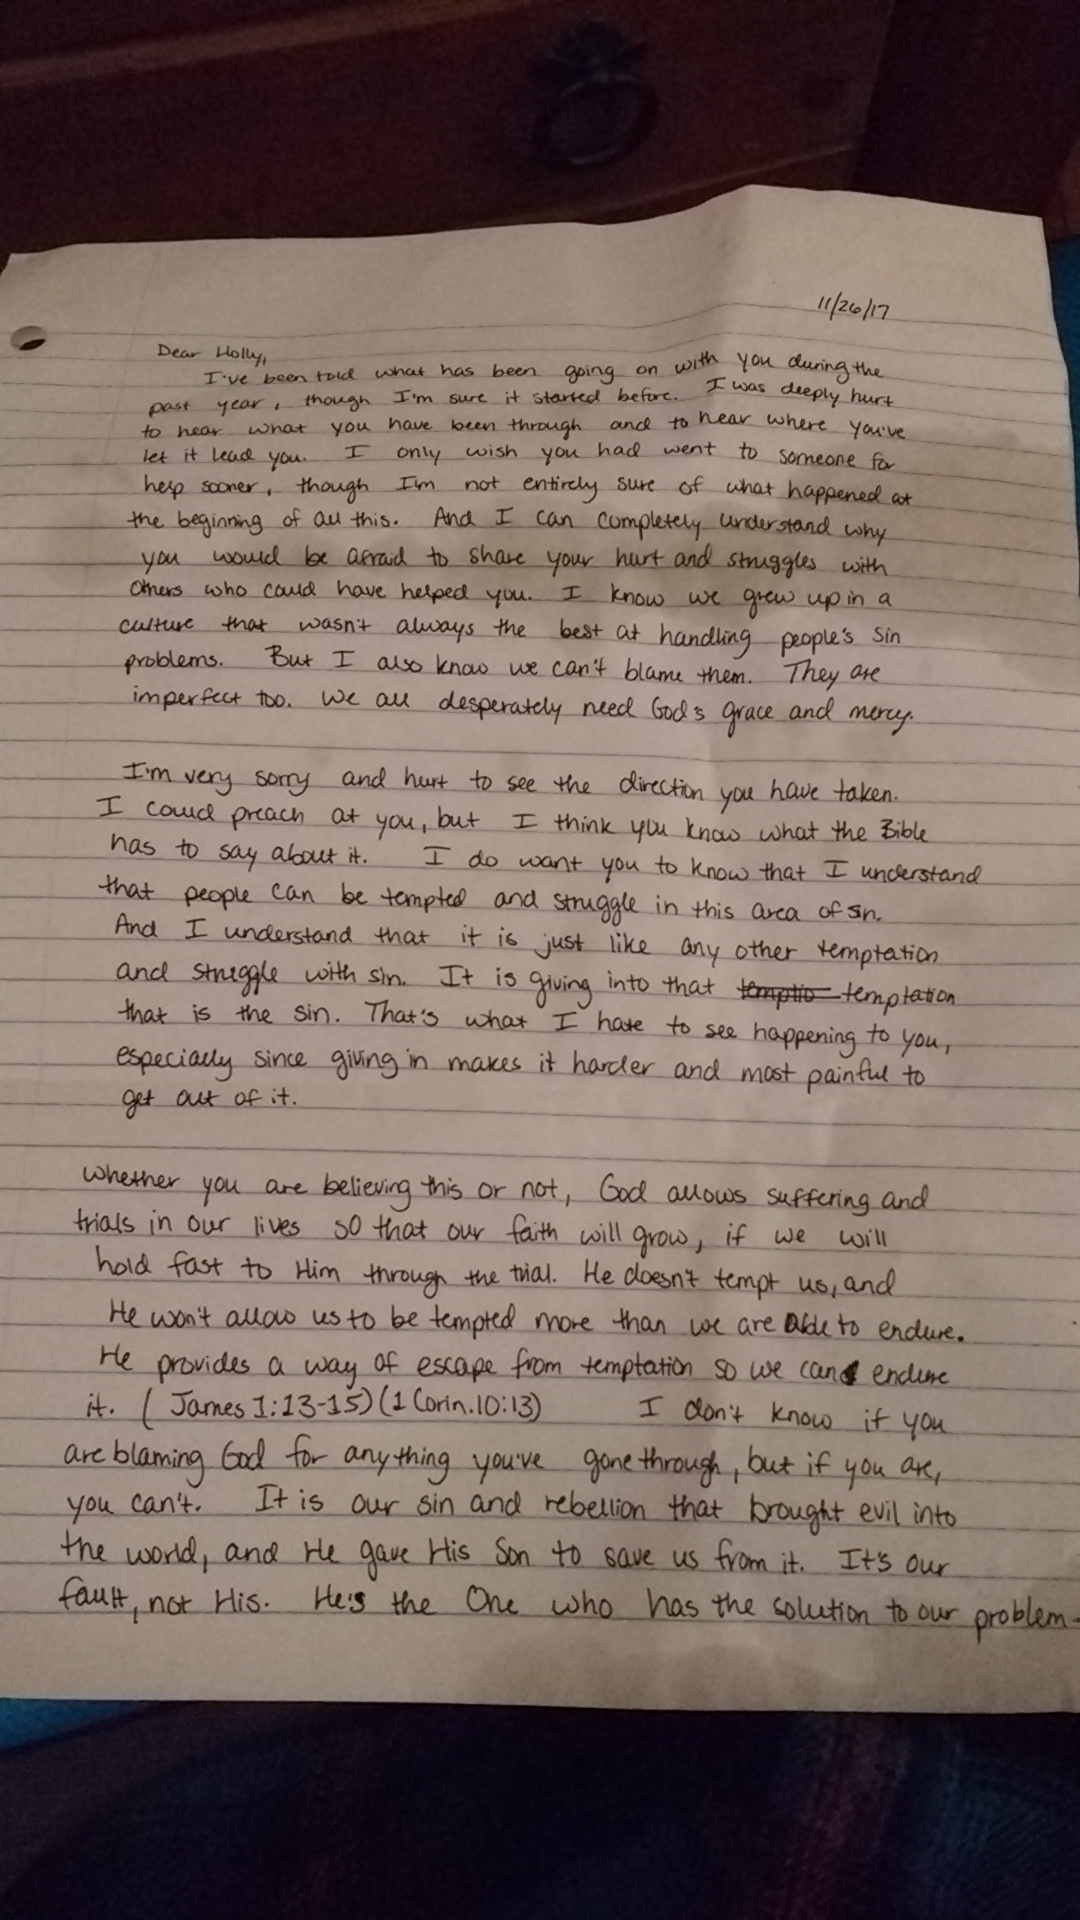 11/26/17
Dear Holly,
I've been told what has been going on with you during the
past year, though I'm sure it started before. I was deeply hurt
to hear what you have been through and to hear where you've
let it lead you. I only wish you had went to someone for
help sooner, though I'm not entirely sure of what happened at
the beginning of all this. And I can completely understand why
you would be afraid to share your hurt and struggles with
others who could have helped you. I know we grew up in a
culture that wasn't always the best at handling people's sin
problems. But I also know we can't blame them. They are
imperfect too. We all desperately need God's grace and mercy.
I'm very sorry and hurt to see the direction you have taken.
I could preach at you, but I think you know what the Bible
has to say about it. I do want you to know that I understand
that people can be tempted and struggle in this area of sin.
And I understand that it is just like any other temptation
and struggle with sin. It is giving into that temptio temptation
that is the sin. That's what I hate to see happening to you,
especially since giving in makes it harder and most painful to
get out of it.
Whether you are believing this or not, God allows suffering and
trials in our lives so that our faith will grow, if we will
hold fast to Him through the trial. He doesn't tempt us, and
He won't allow us to be tempted more than we are able to endure.
He provides a way of escape from temptation so we can endure
it. (James 1:13-15)(1 Corin.10:13) I don't know if you
are blaming God for anything you've gone through, but if you are,
you can't. It is our sin and rebellion that brought evil into
the world, and He gave His Son to save us from it. It's our
fault, not His. He's the One who has the solution to our problem-